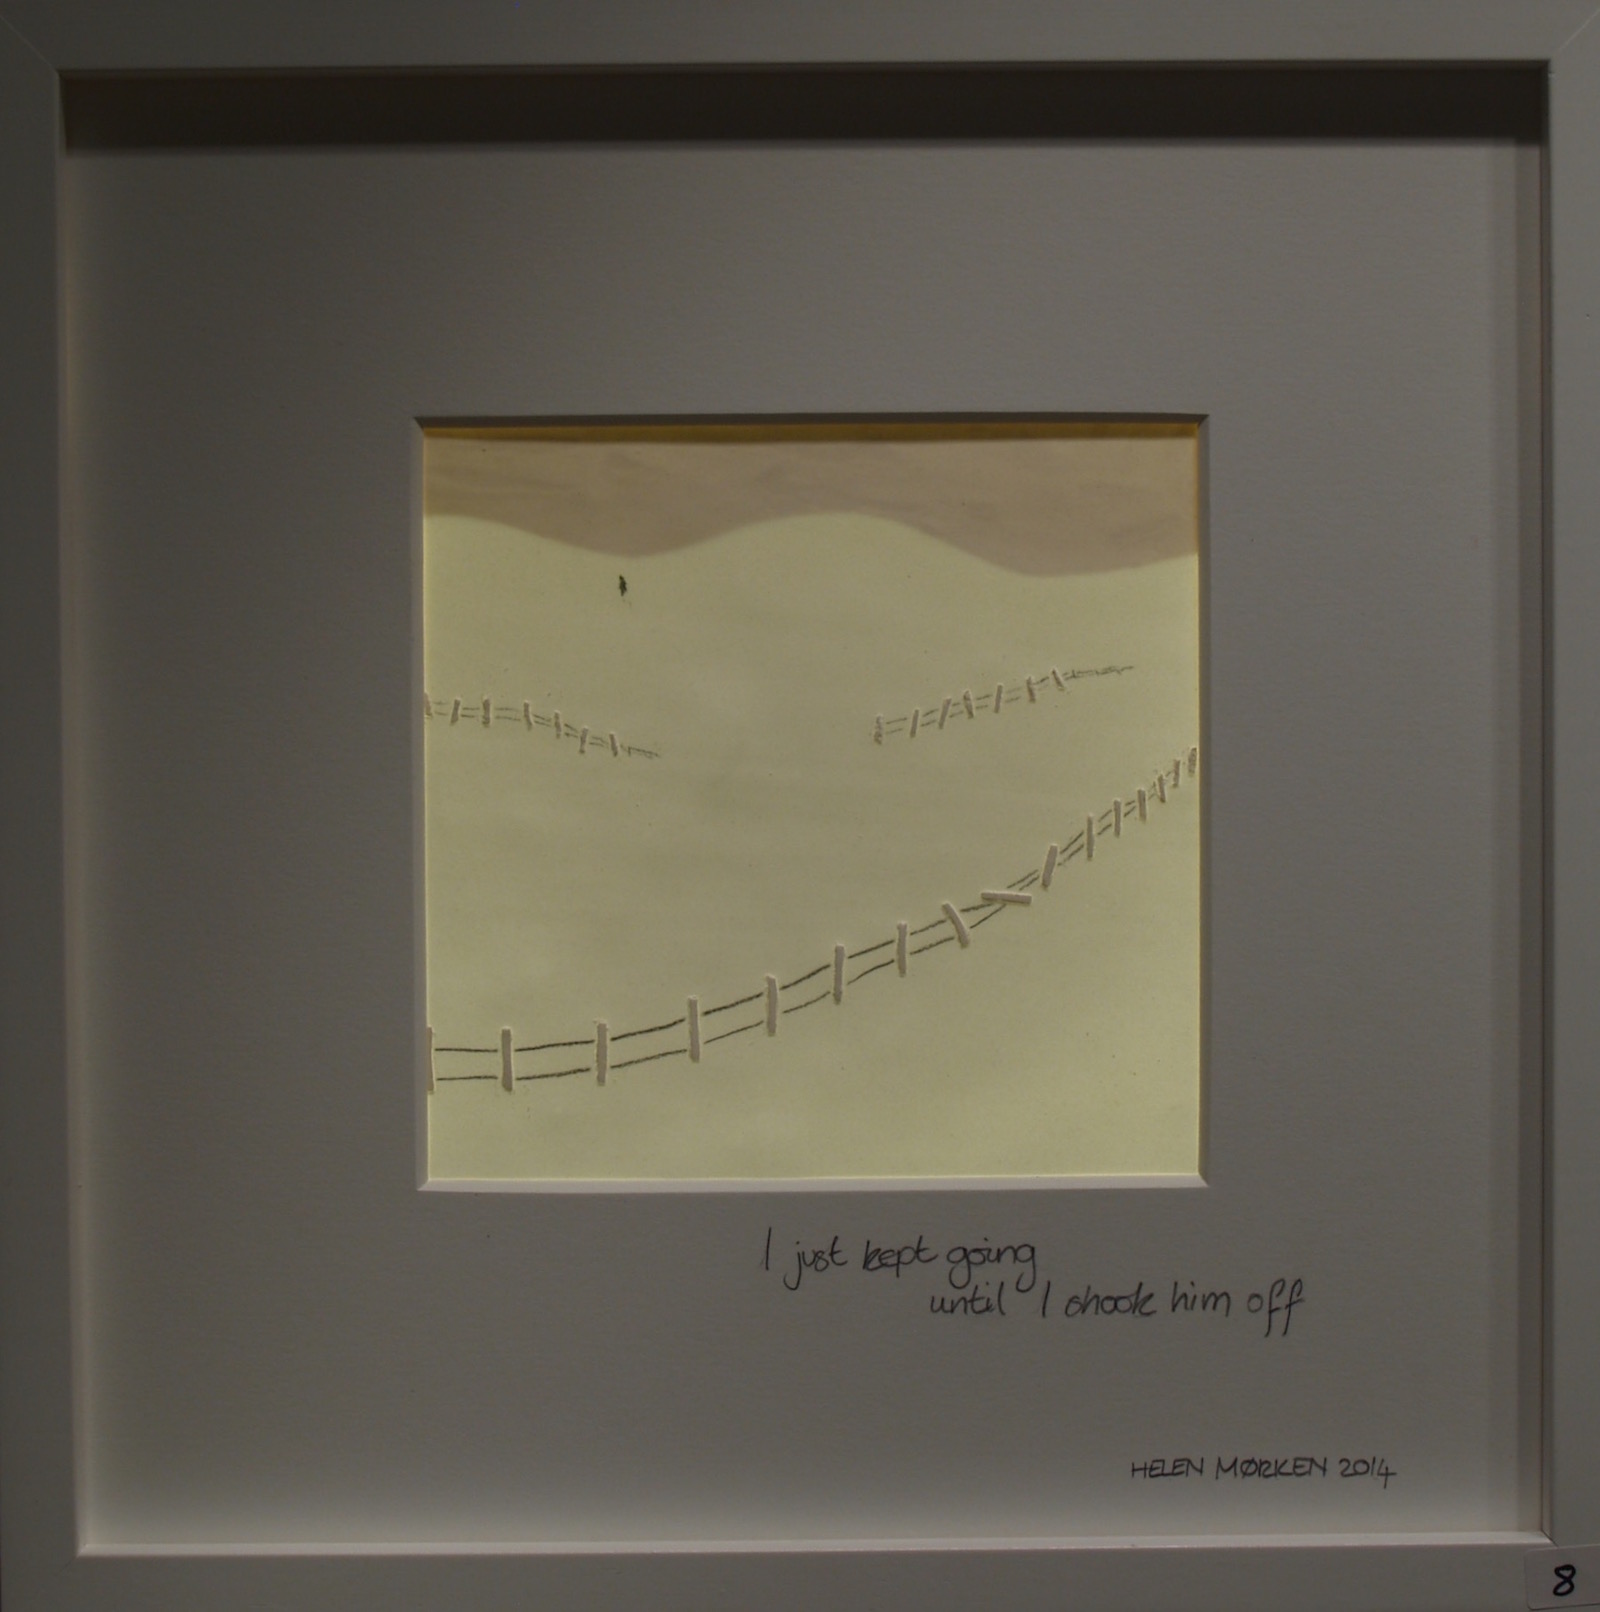 I just kept going
until I shook him off
HELEN MØRKEN 2014
8